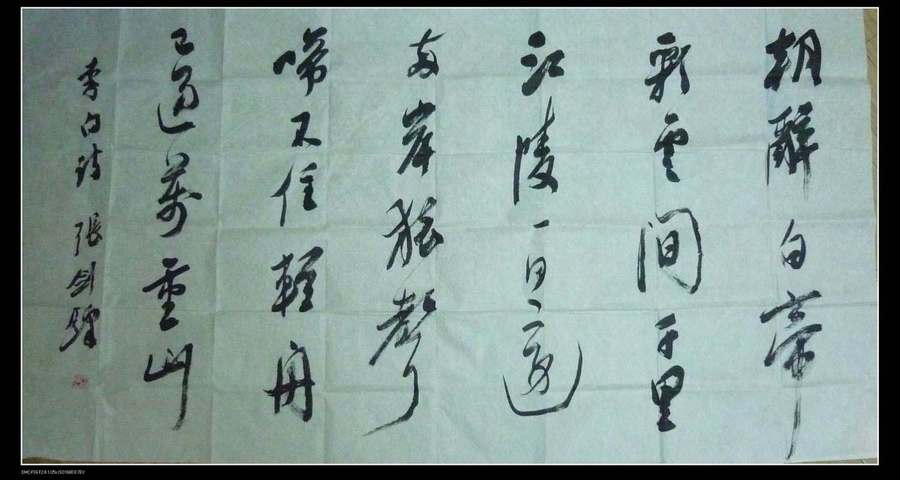 朝辭白帝
彩雲間千里
江陵一日還
两岸猿聲
啼不住輕舟
已過萬重山
李白詩 張剑